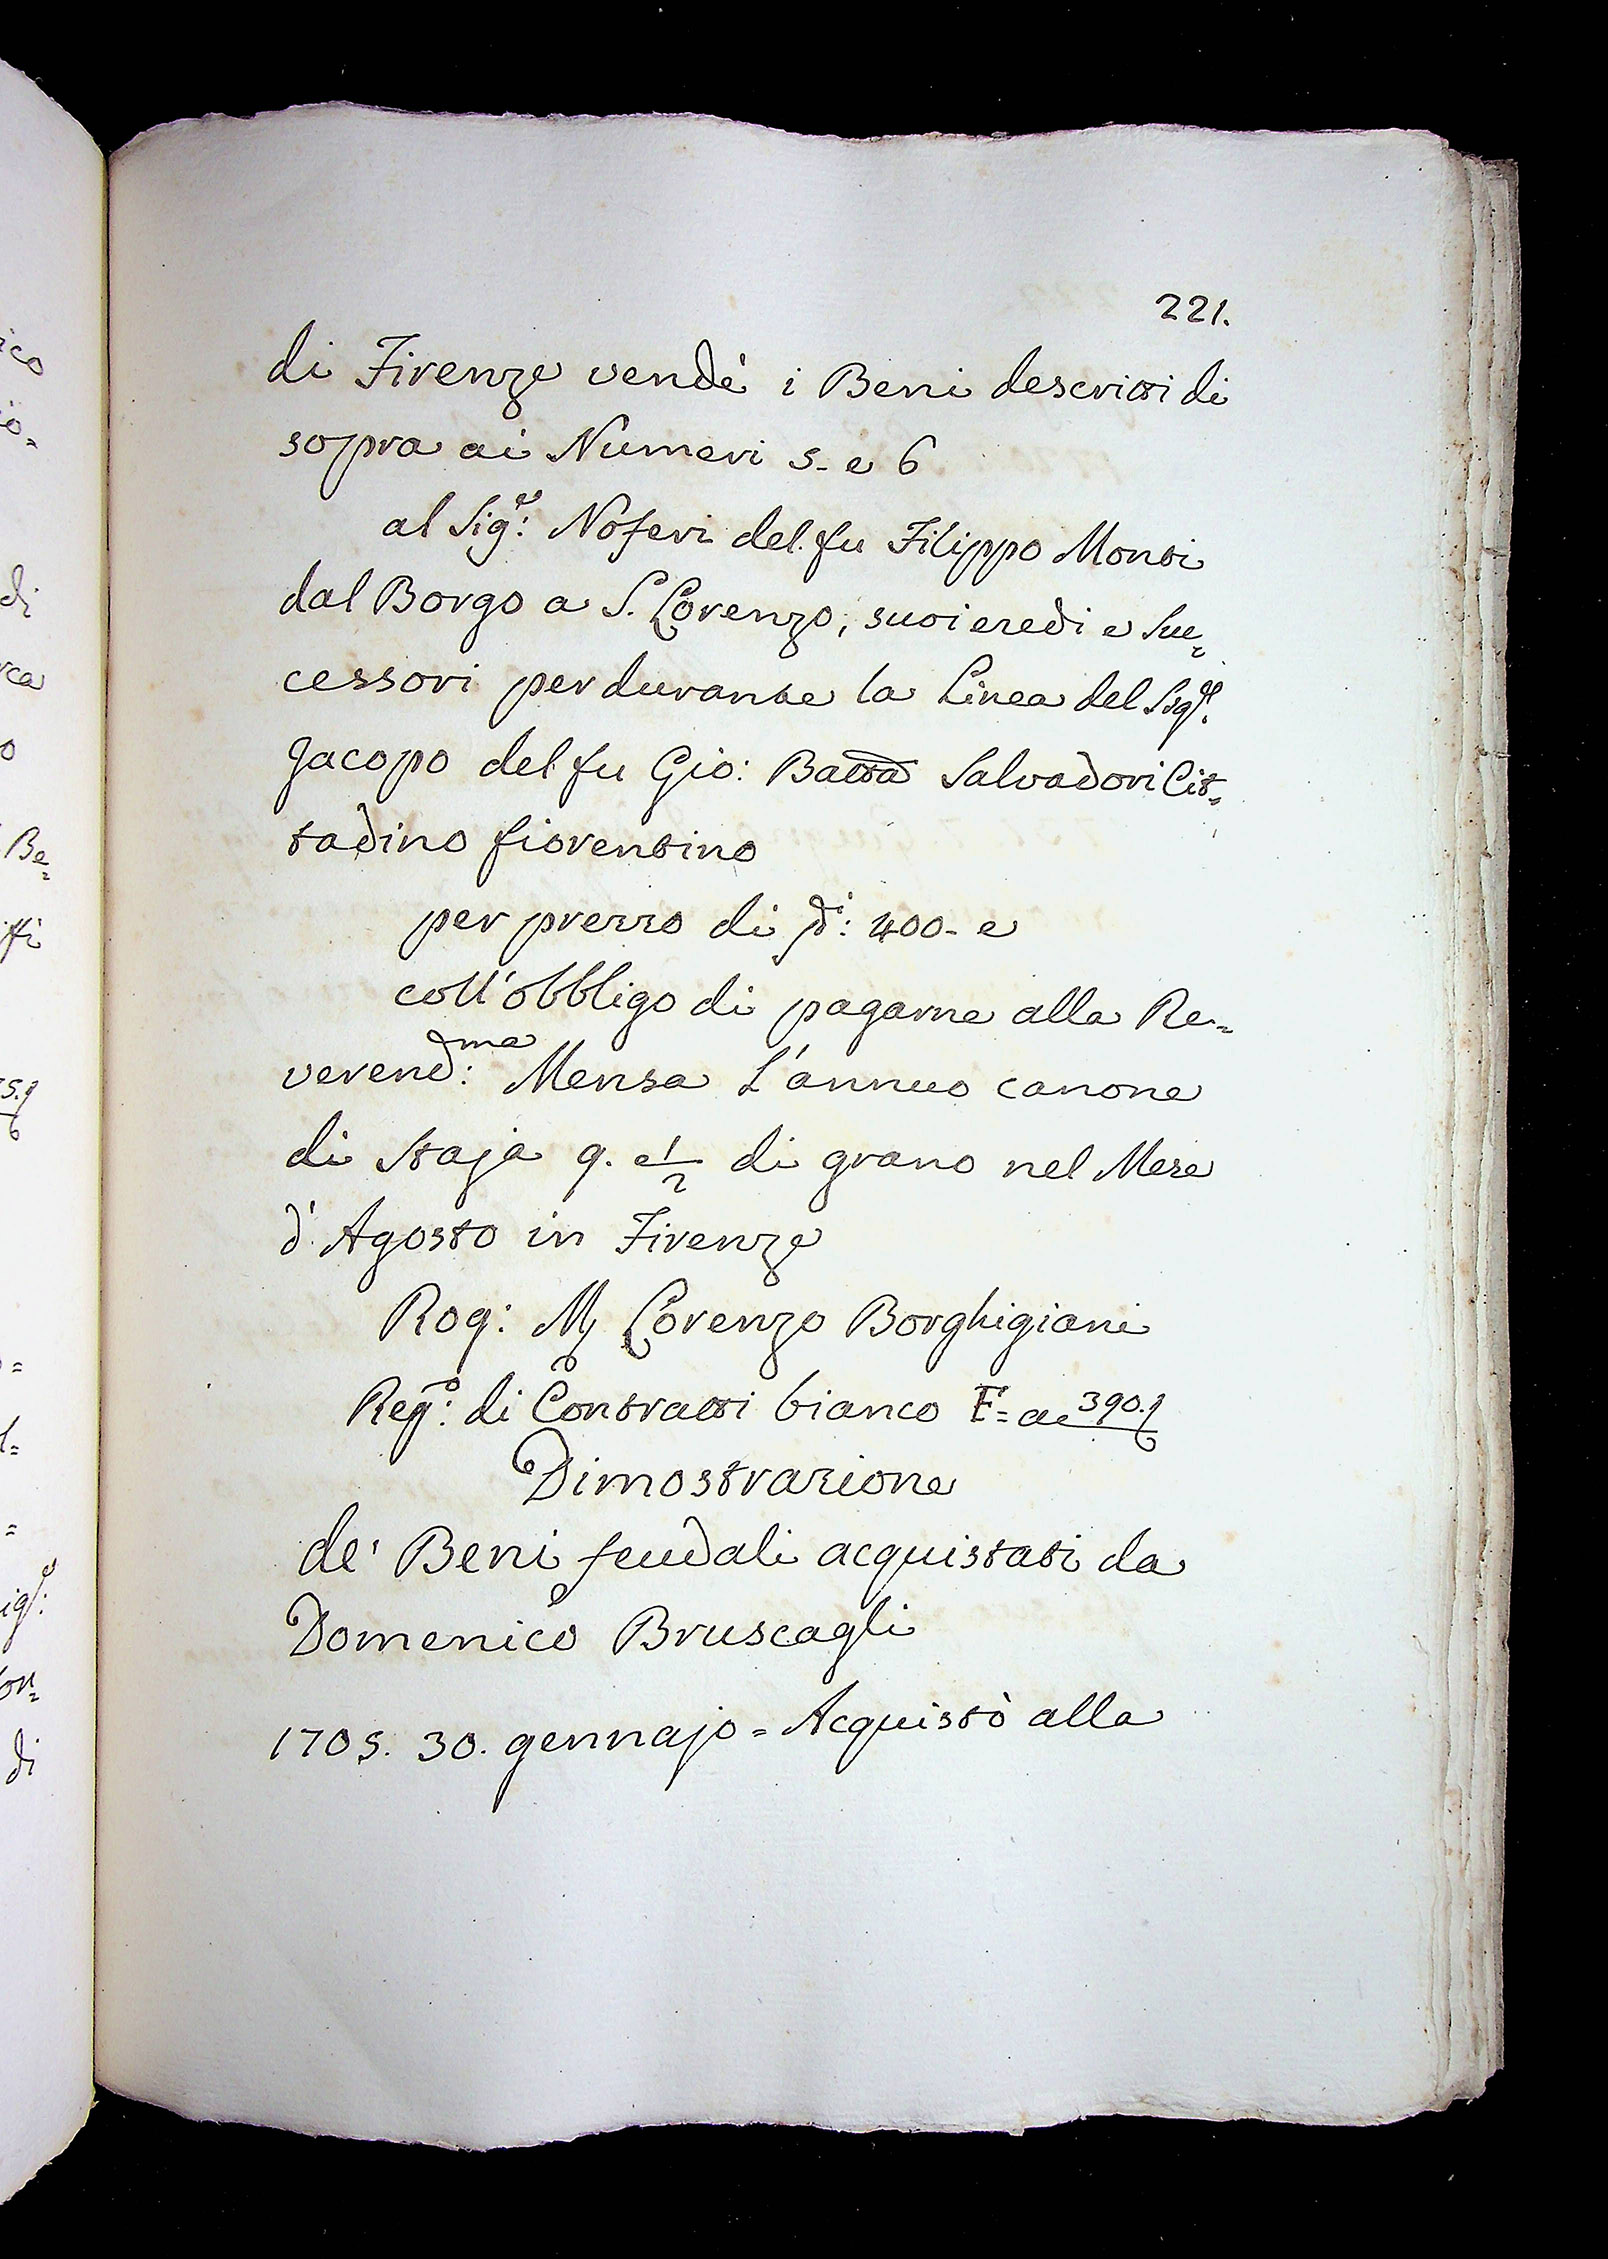 221.
di Firenze vendè i Beni descritti di
sopra ai Numeri 5- e 6
al Sig:e Noferi del fu Filippo Monti
dal Borgo a S. Lorenzo, suoi eredi e Suc=
cessori perdurante la Linea del Sig:e
Jacopo del fu Gio: Batta Salvadori Cit=
tadino fiorentino
per prezzo di di: 400- e
coll'obbligo di pagarne alla Re=
verend:ma Mensa L'annuo canone
di Staja 9. e 1/2 di grano nel Mese
d'Agosto in Firenze
Rog: M Lorenzo Borghigiani
Reg:o di Contratti bianco E= a c 390.
Dimostrazione
de' Beni feudali acquistati da
Domenico Bruscagli
1705. 30. gennajo = Acquistò alla